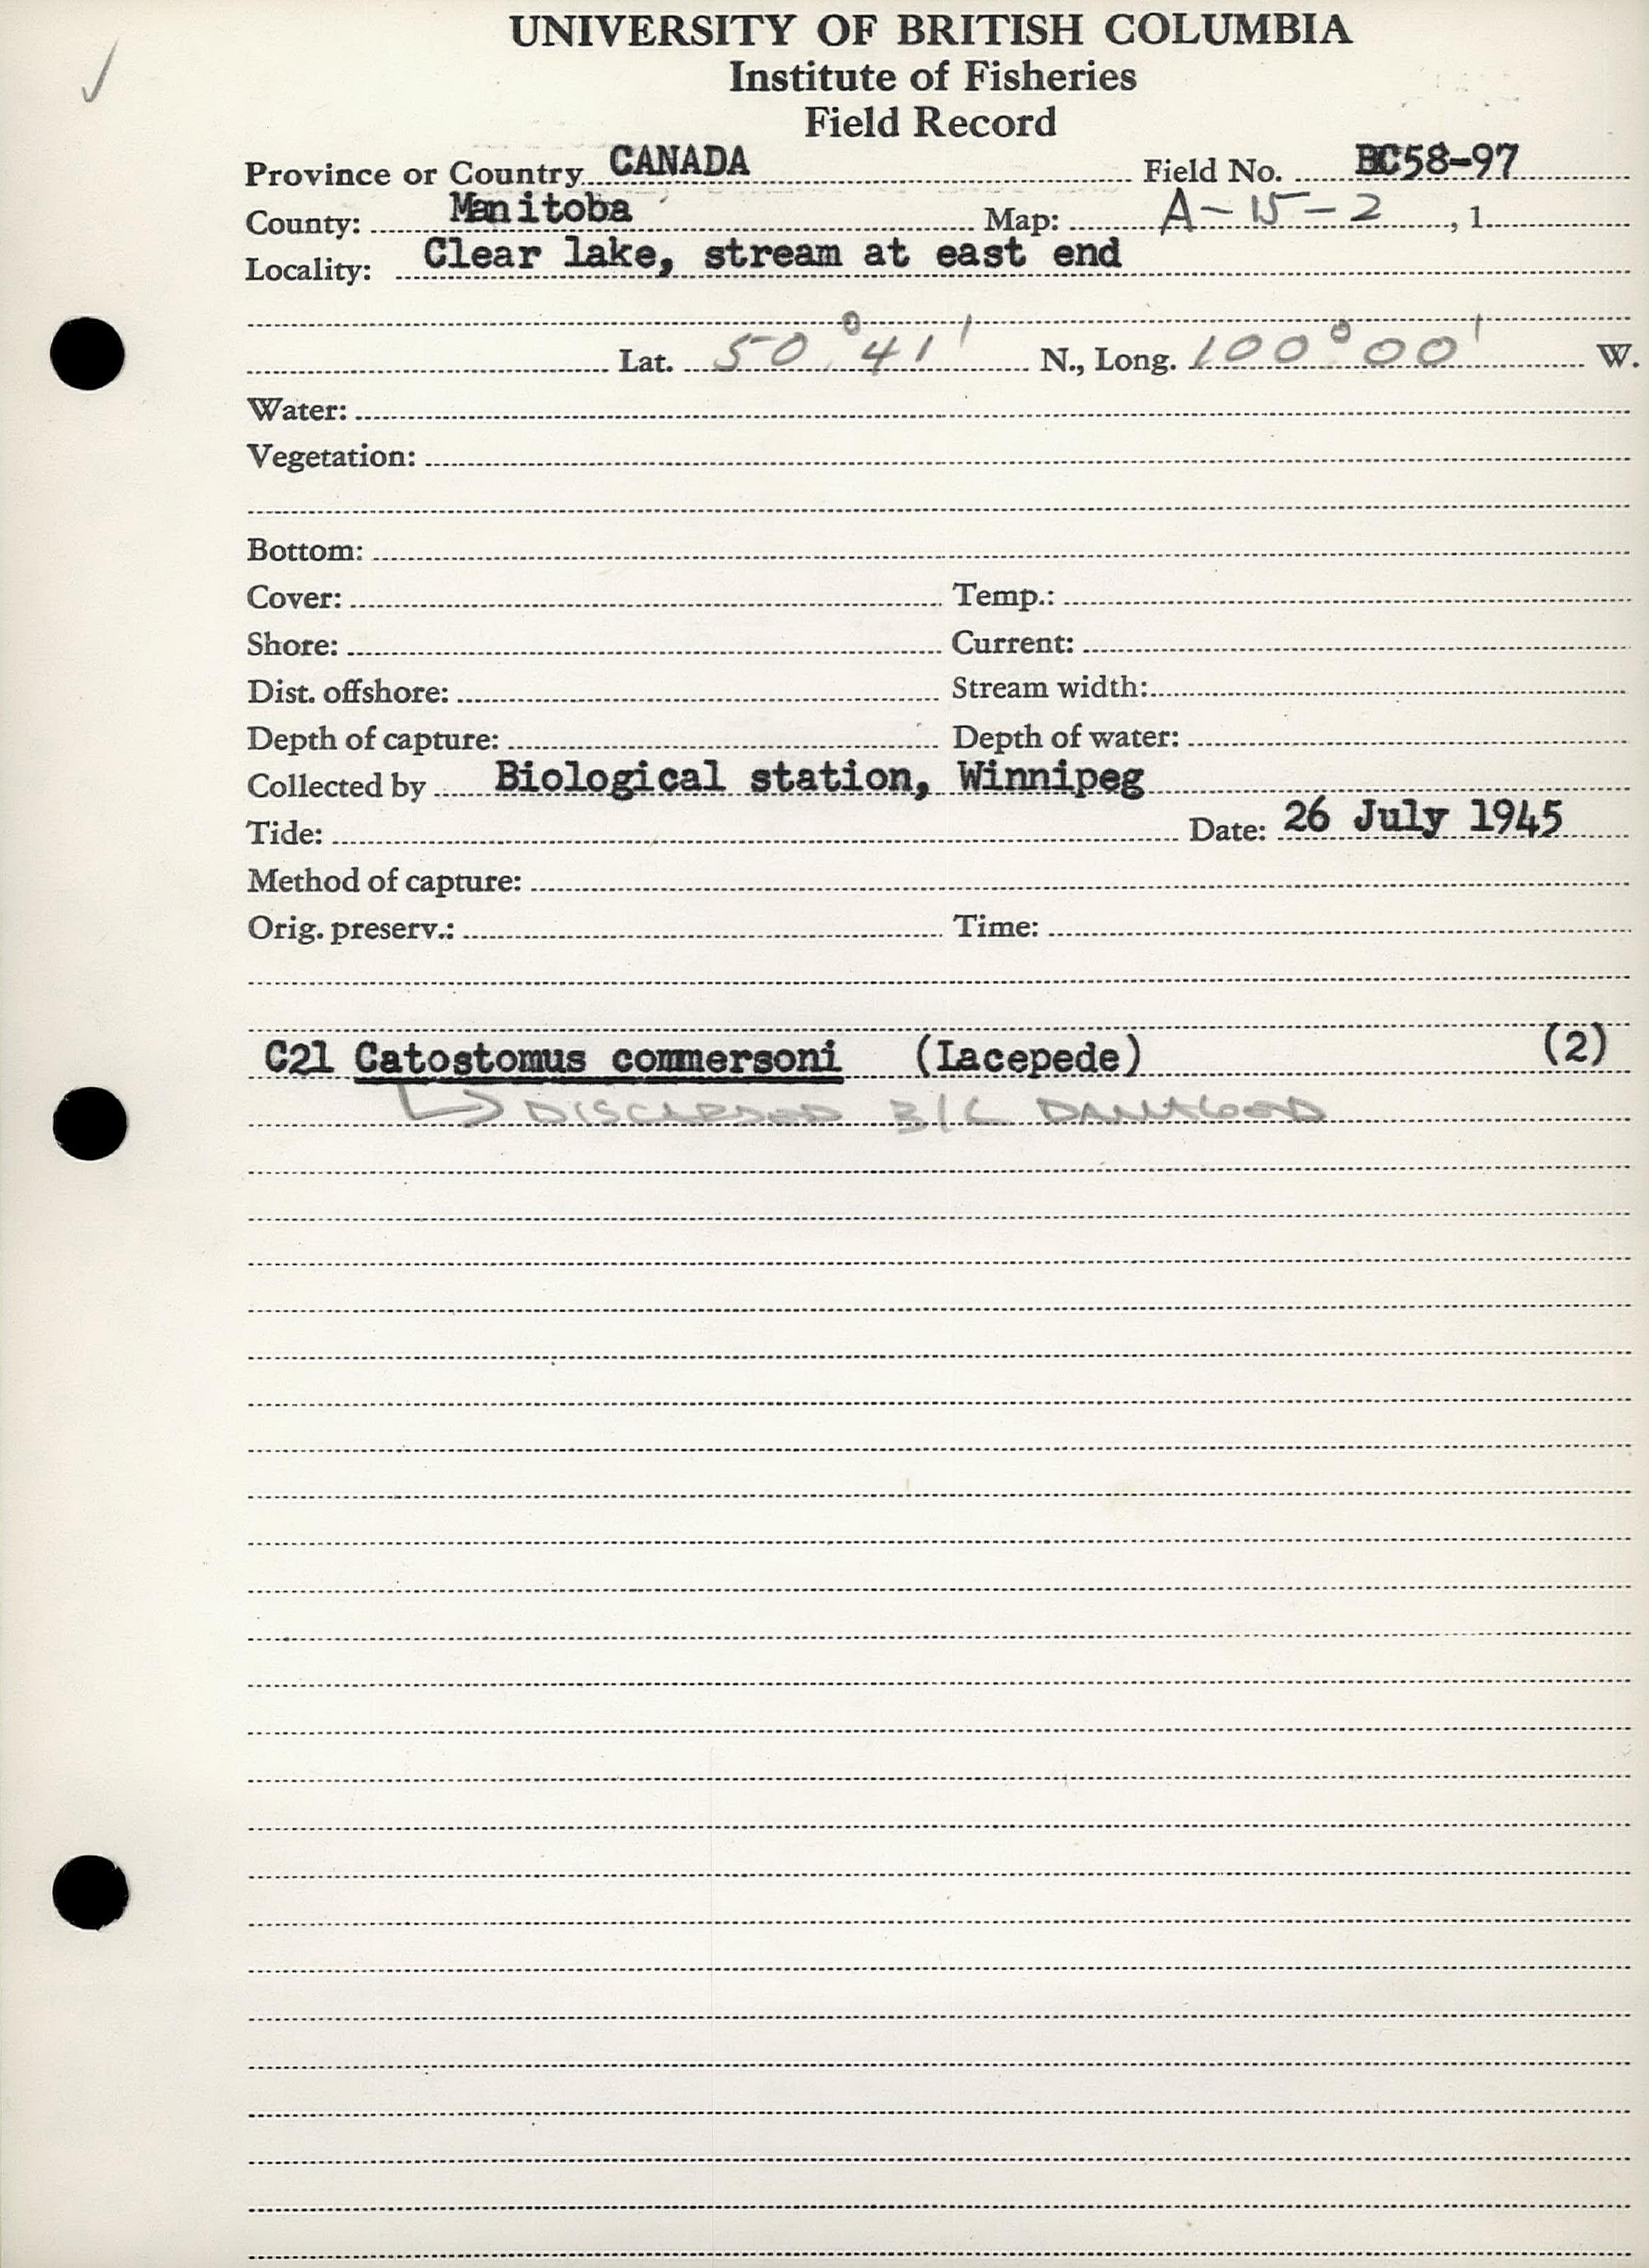 UNIVERSITY OF BRITISH COLUMBIA
Institute of Fisheries
Field Record
Province or Country CANADA Field No. BC58-97
County: Manitoba Map: A-15-2, 1
Locality: Clear lake, stream at east end
Lat. 50°41' N., Long. 100°00' W.
Water:
Vegetation:
Bottom:
Cover: Temp.:
Shore: Current:
Dist. offshore: Stream width:
Depth of capture: Depth of water:
Collected by Biological station, Winnipeg
Tide: Date: 26 July 1945
Method of capture:
Orig. preserv.: Time:
C21 Catostomus commersoni (Lacepede) (2)
↳ DISCARDED B/C DAMAGED